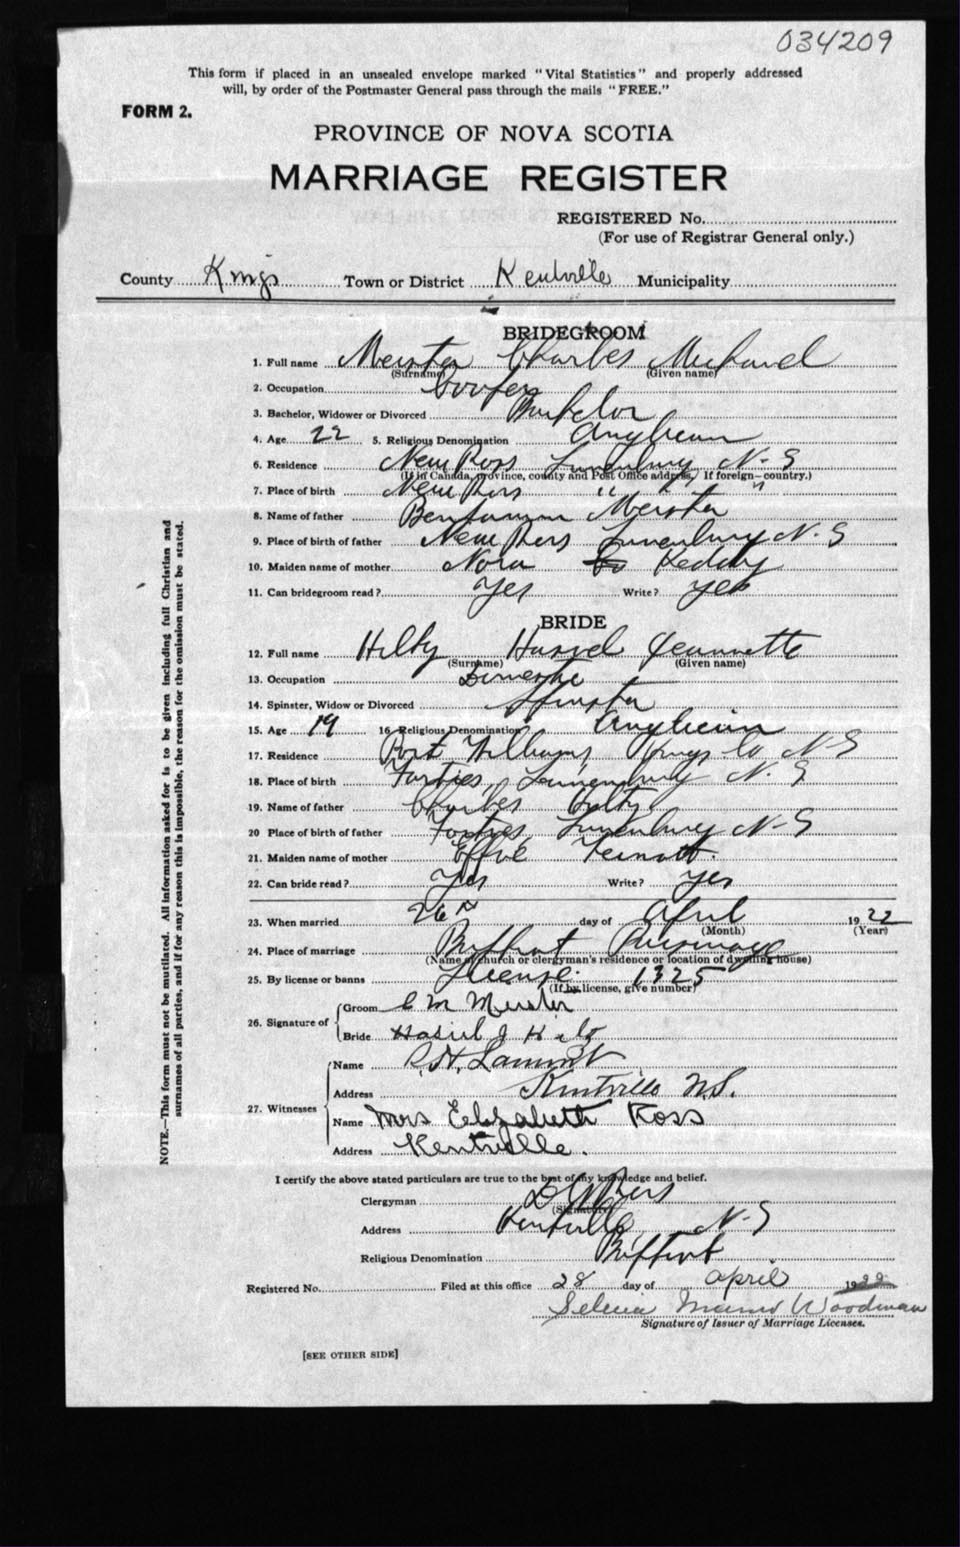 034209
This form if placed in an unsealed envelope marked "Vital Statistics" and properly addressed
will, by order of the Postmaster General pass through the mails "FREE."
FORM 2.
PROVINCE OF NOVA SCOTIA
MARRIAGE REGISTER
REGISTERED No.
(For use of Registrar General only.)
County Kings Town or District Kentville Municipality
BRIDEGROOM
1. Full name Meister Charles Michael
(Surname) (Given name)
2. Occupation Cooper
3. Bachelor, Widower or Divorced Bachelor
4. Age 22 5. Religious Denomination Anglican
6. Residence New Ross Lunenburg N-S
(If in Canada, province, county and Post Office address. If foreign—country.)
7. Place of birth New Ross " "
8. Name of father Benjamin Meister
9. Place of birth of father New Ross Lunenburg N-S
10. Maiden name of mother Nora Keddy
11. Can bridegroom read? Yes Write? Yes
BRIDE
12. Full name Hilty Hazel Jeannette
(Surname) (Given name)
13. Occupation Domestic
14. Spinster, Widow or Divorced Spinster
15. Age 19 16 Religious Denomination? Anglican
17. Residence Port Williams Kings Co N-S
18. Place of birth Forties Lunenburg N. S
19. Name of father Charles Hilty
20 Place of birth of father Forties Lunenburg N-S
21. Maiden name of mother Effie
22. Can bride read? Yes Write? Yes
23. When married 26 day of April 1922
(Month) (Year)
24. Place of marriage Baptist Parsonage
(Name of church or clergyman's residence or location of dwelling house)
25. By license or banns License 1325
(If by license, give number)
26. Signature of
Groom C M Meister
Bride Hasiel J Hilty
27. Witnesses
Name R. H. 
Address Kentville N.S.
Name Mrs Elizabeth Ross
Address Kentville.
I certify the above stated particulars are true to the best of my knowledge and belief.
Clergyman
(Signature)
Address Kentville N-S
Religious Denomination Baptist
Registered No. Filed at this office 28 day of April 1922
Selena Woodman
Signature of Issuer of Marriage Licenses.
[SEE OTHER SIDE]
NOTE.—This form must not be mutilated. All information asked for is to be given including full Christian and
surnames of all parties, and if for any reason this is impossible, the reason for the omission must be stated.